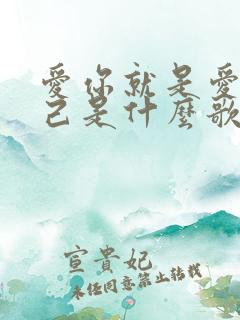 愛你就是愛
己是什麼歌
宣貴妃
未經同意禁止轉載